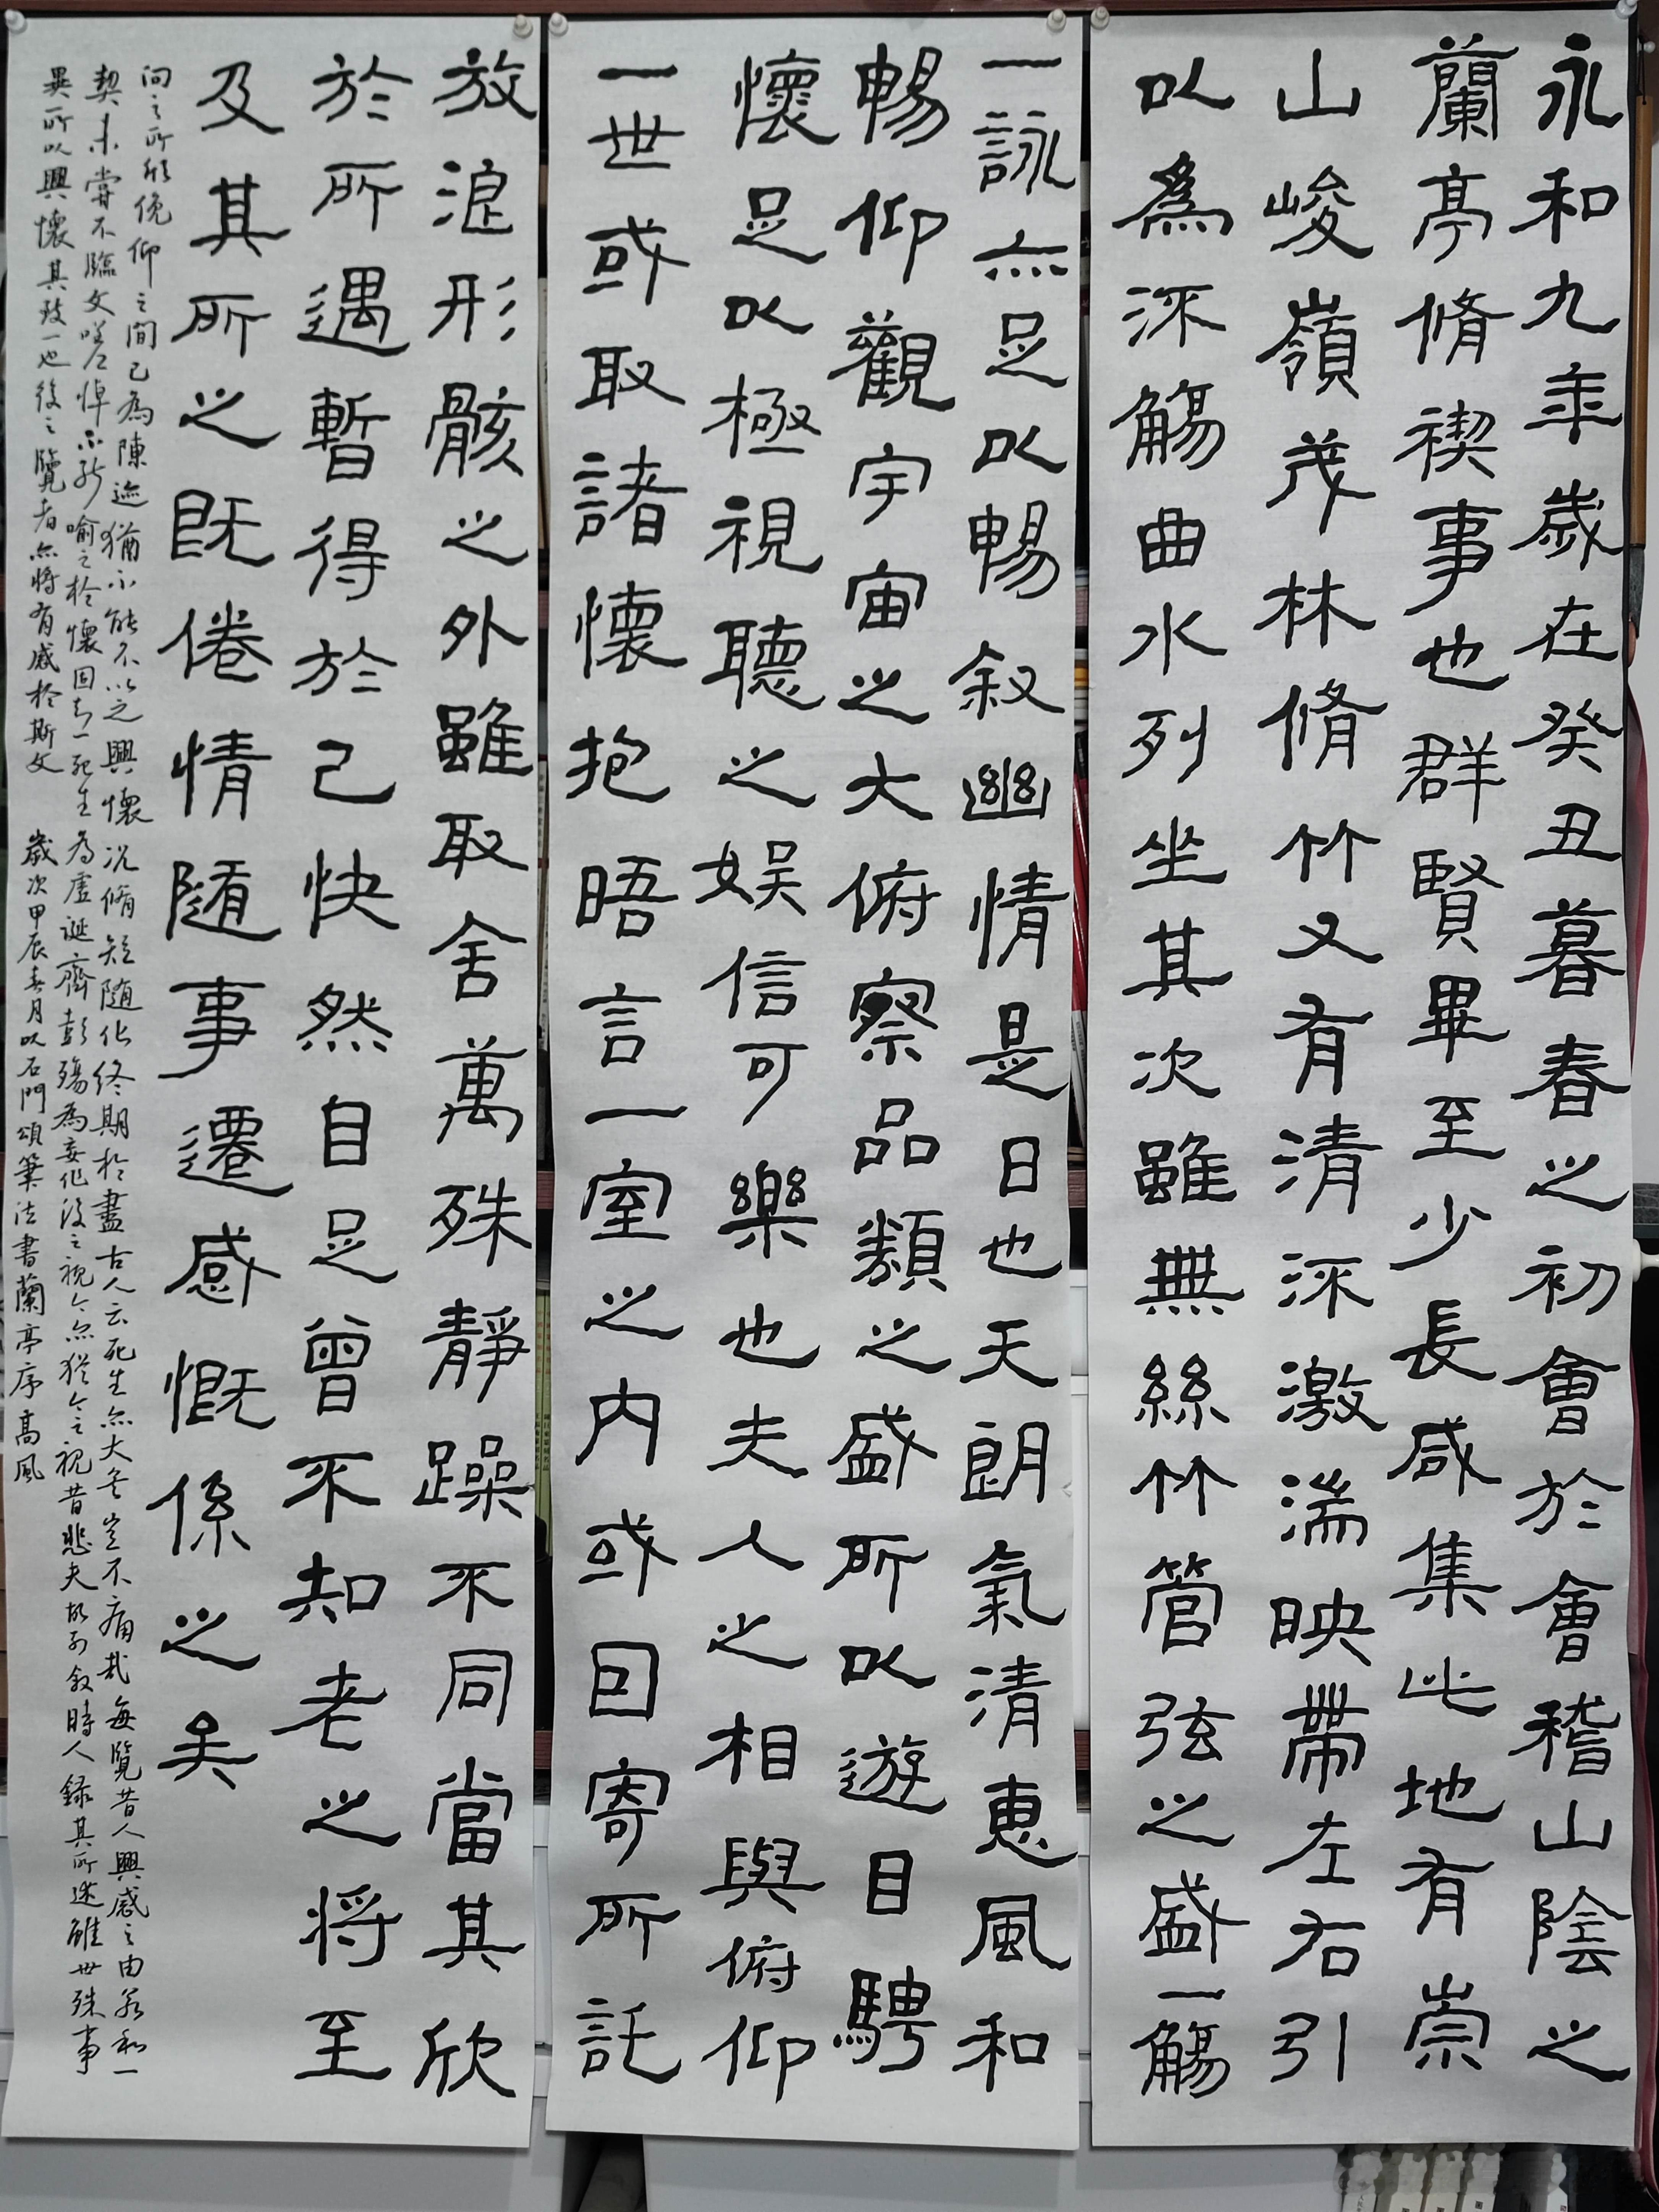 永和九年歲在癸丑暮春之初會於會稽山陰之
蘭亭脩禊事也群賢畢至少長咸集此地有崇
山峻嶺茂林脩竹又有清流激湍映帶左右引
以為流觴曲水列坐其次雖無絲竹管弦之盛一觴
一詠亦足以暢叙幽情是日也天朗氣清惠風和
暢仰觀宇宙之大俯察品類之盛所以遊目騁
懷足以極視聽之娛信可樂也夫人之相與俯仰
一世或取諸懷抱晤言一室之內或因寄所託
放浪形骸之外雖取舍萬殊靜躁不同當其欣
於所遇暫得於己快然自足曾不知老之將至
及其所之既倦情隨事遷感慨係之矣
向之所欣俛仰之間已為陳迹猶不能不以之興懷況脩短隨化終期於盡古人云死生亦大矣豈不痛哉每覽昔人興感之由若和一
契未嘗不臨文嗟悼不能喻之於懷固知一死生為虛誕齊彭殤為妄作後之視今亦猶今之視昔悲夫故列叙時人錄其所述雖世殊事
異所以興懷其致一也後之覽者亦將有感於斯文 歲次甲辰春月以石門頌筆法書蘭亭序高風